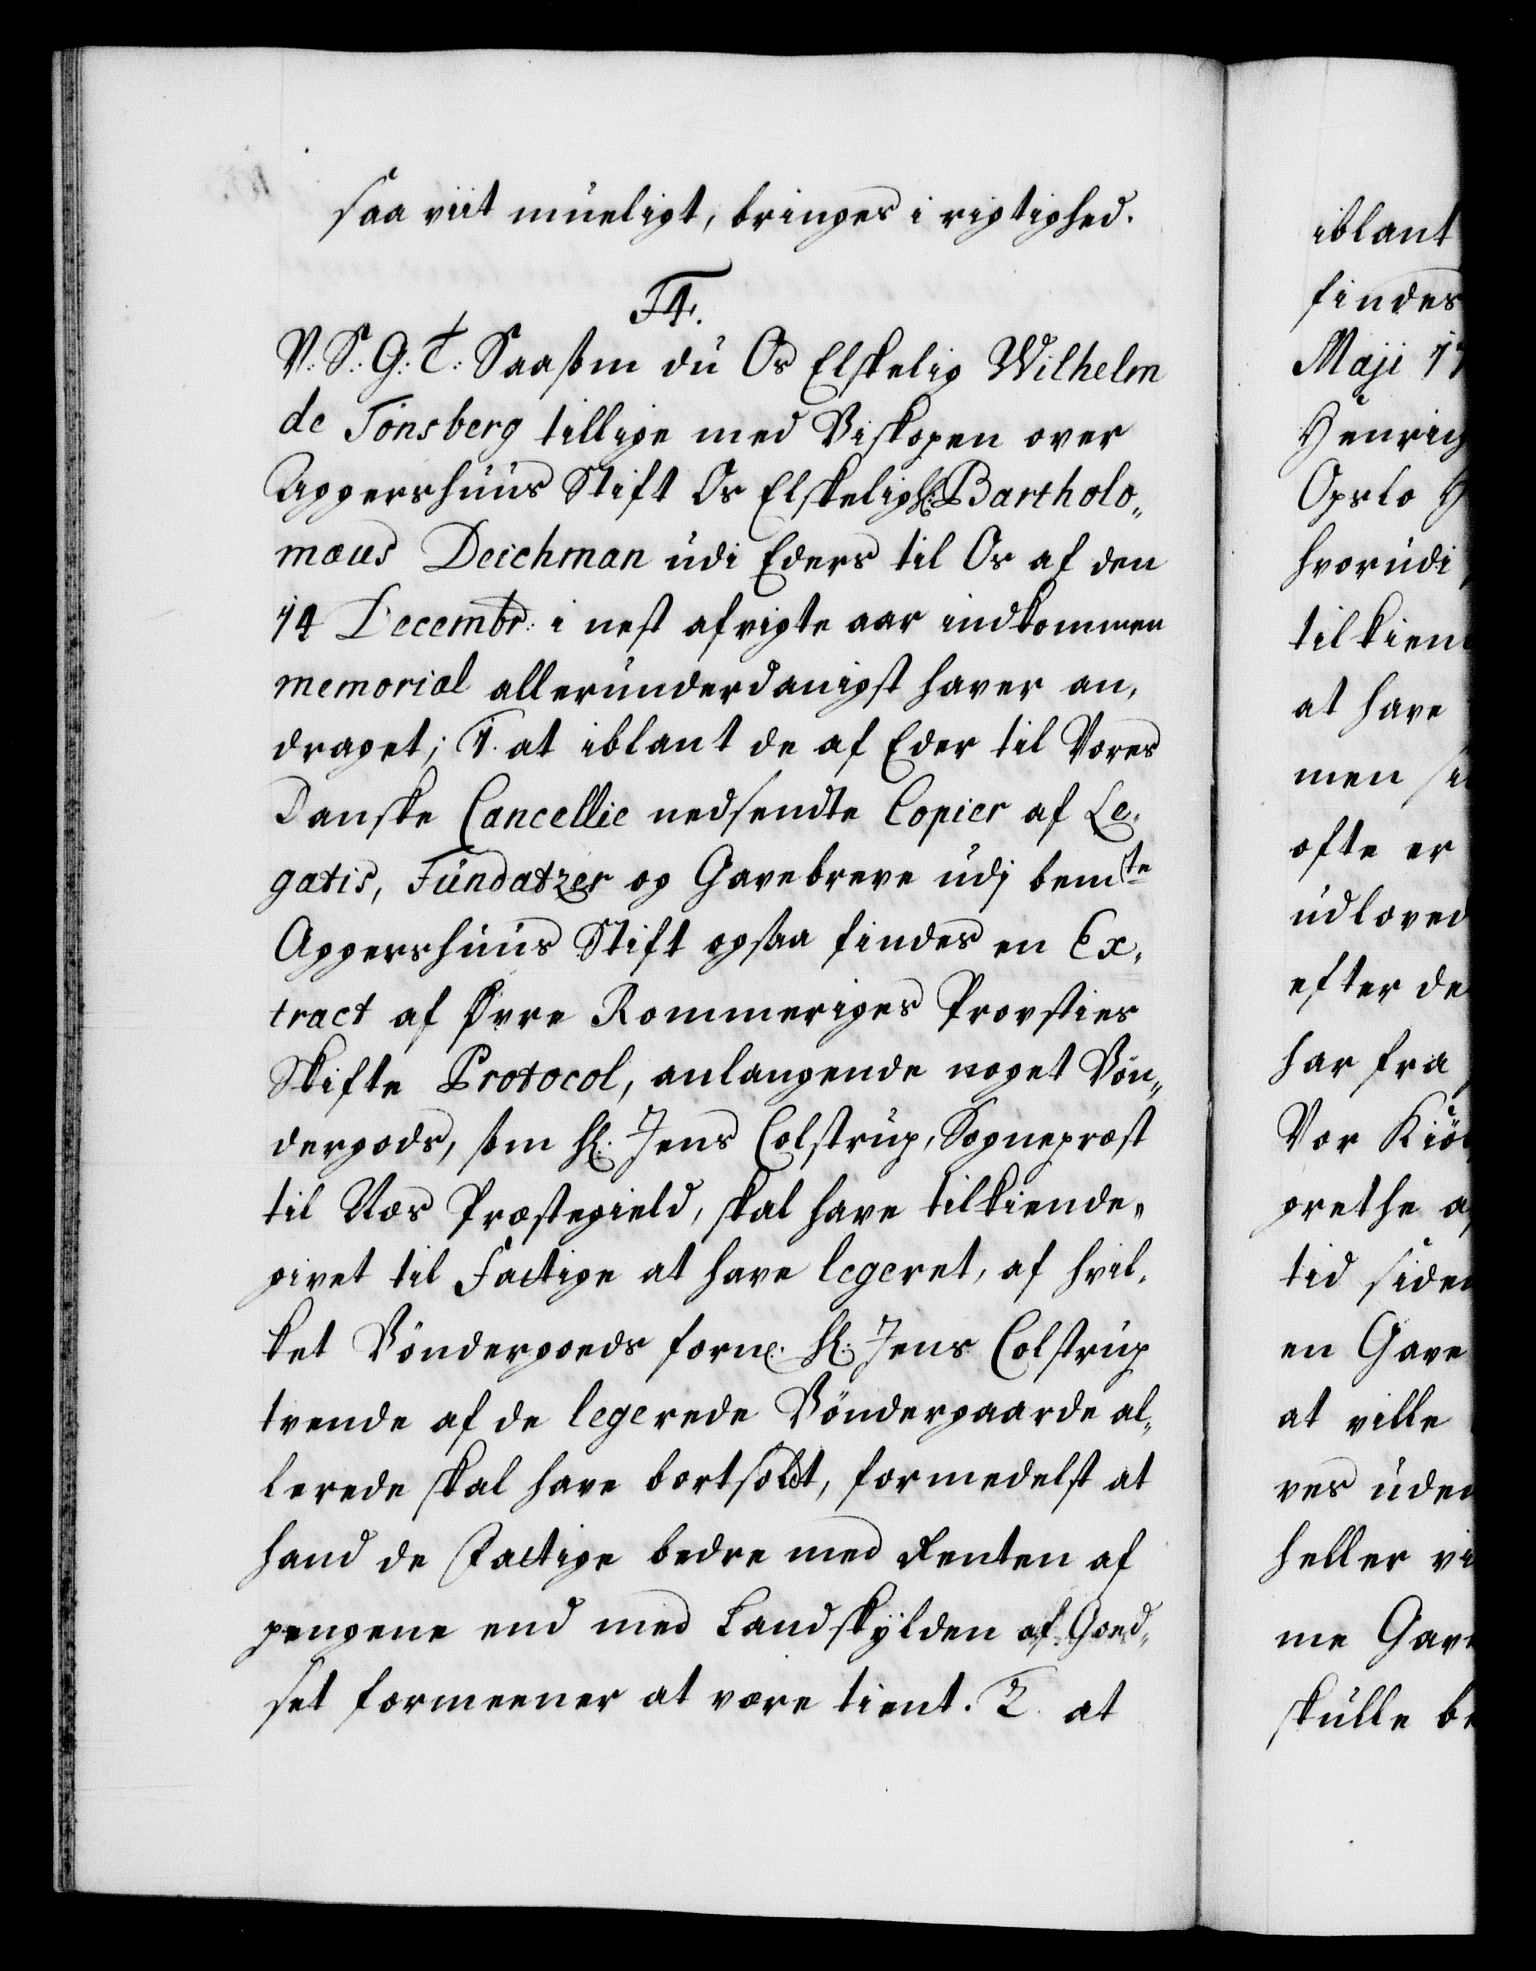 saa viit mueligt, bringes i rigtighed.
F4.
V: S: G: T: Saasom du Os Elskelig Wilhelm
de Tønsberg tillige med Biskopen over
Aggershuus Stift Os Elskelig Hr: Bartholo„
mæus Deichman udi Eders til Os af den
14 Decembr: i nest afvigte aar indkommen
memorial allerunderdanigst haver an„
draget; 1. at iblant de af Eder til Vores
Danske Cancellie nedsendte Copier af Le„
gatis, Fundatzer og Gavebreve udj bemte
Aggershuus Stift ogsaa findes en Ex„
tract af Øvre Rommeriges Provsties
Skifte Protocol, anlangende noget Bøn„
dergods, som Hr. Jens Colstrup, Sogneprest
til Næs Præstegield, skal have tilkiende„
givet til Fattige at have legeret, af hvil„
ket Bøndergoeds forne. Hr: Jens Colstrup
tvende af de legerede Bøndergaarde al„
lerede skal have bortsoldt, formedelst at
hand de Fattige bedre med Renten af
pengene end med Landskylden af Goed„
set formeener at være tient. 2. at
iblant
findes
Maji 17
Henrich
Opslo H
hvorudi
tilkien
at have
men si
ofte er
udloved
efter de
har fra
Vor Kiø
grethe a
tid siden
en Gave
at ville
ves uden
heller vi
me Gave
skulle be